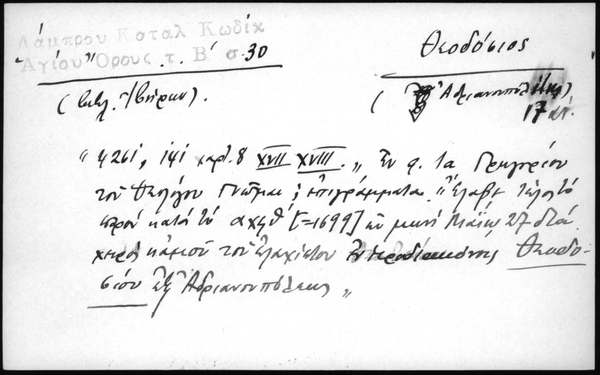 Λάμπρου Καταλ Κωδίκ
Ἁγίου Ὄρους τ. Β' σ. 30
Θεοδόσιος
(Βιβλ. Ἰβήρων).
Ἀδριανουπολίτης)
17 αἰ.
"4261, 141 χαρτ. 8 XVII XVIII. „ Ἐν φ. 1α Γρηγορίου
τοῦ Θεολόγου Γνῶμαι ἐπιγράμματα. "Ἔλαβε τέλος τὸ
παρὸν κατὰ τὸ αχϟθ' [=1699] ἐν μηνὶ Μαΐω 27 διὰ
χειρὸς κἀμοῦ τοῦ ἐλαχίστου Ἱεροδιακόνου Θεοδο-
σίου ἐξ Ἀδριανουπόλεως „